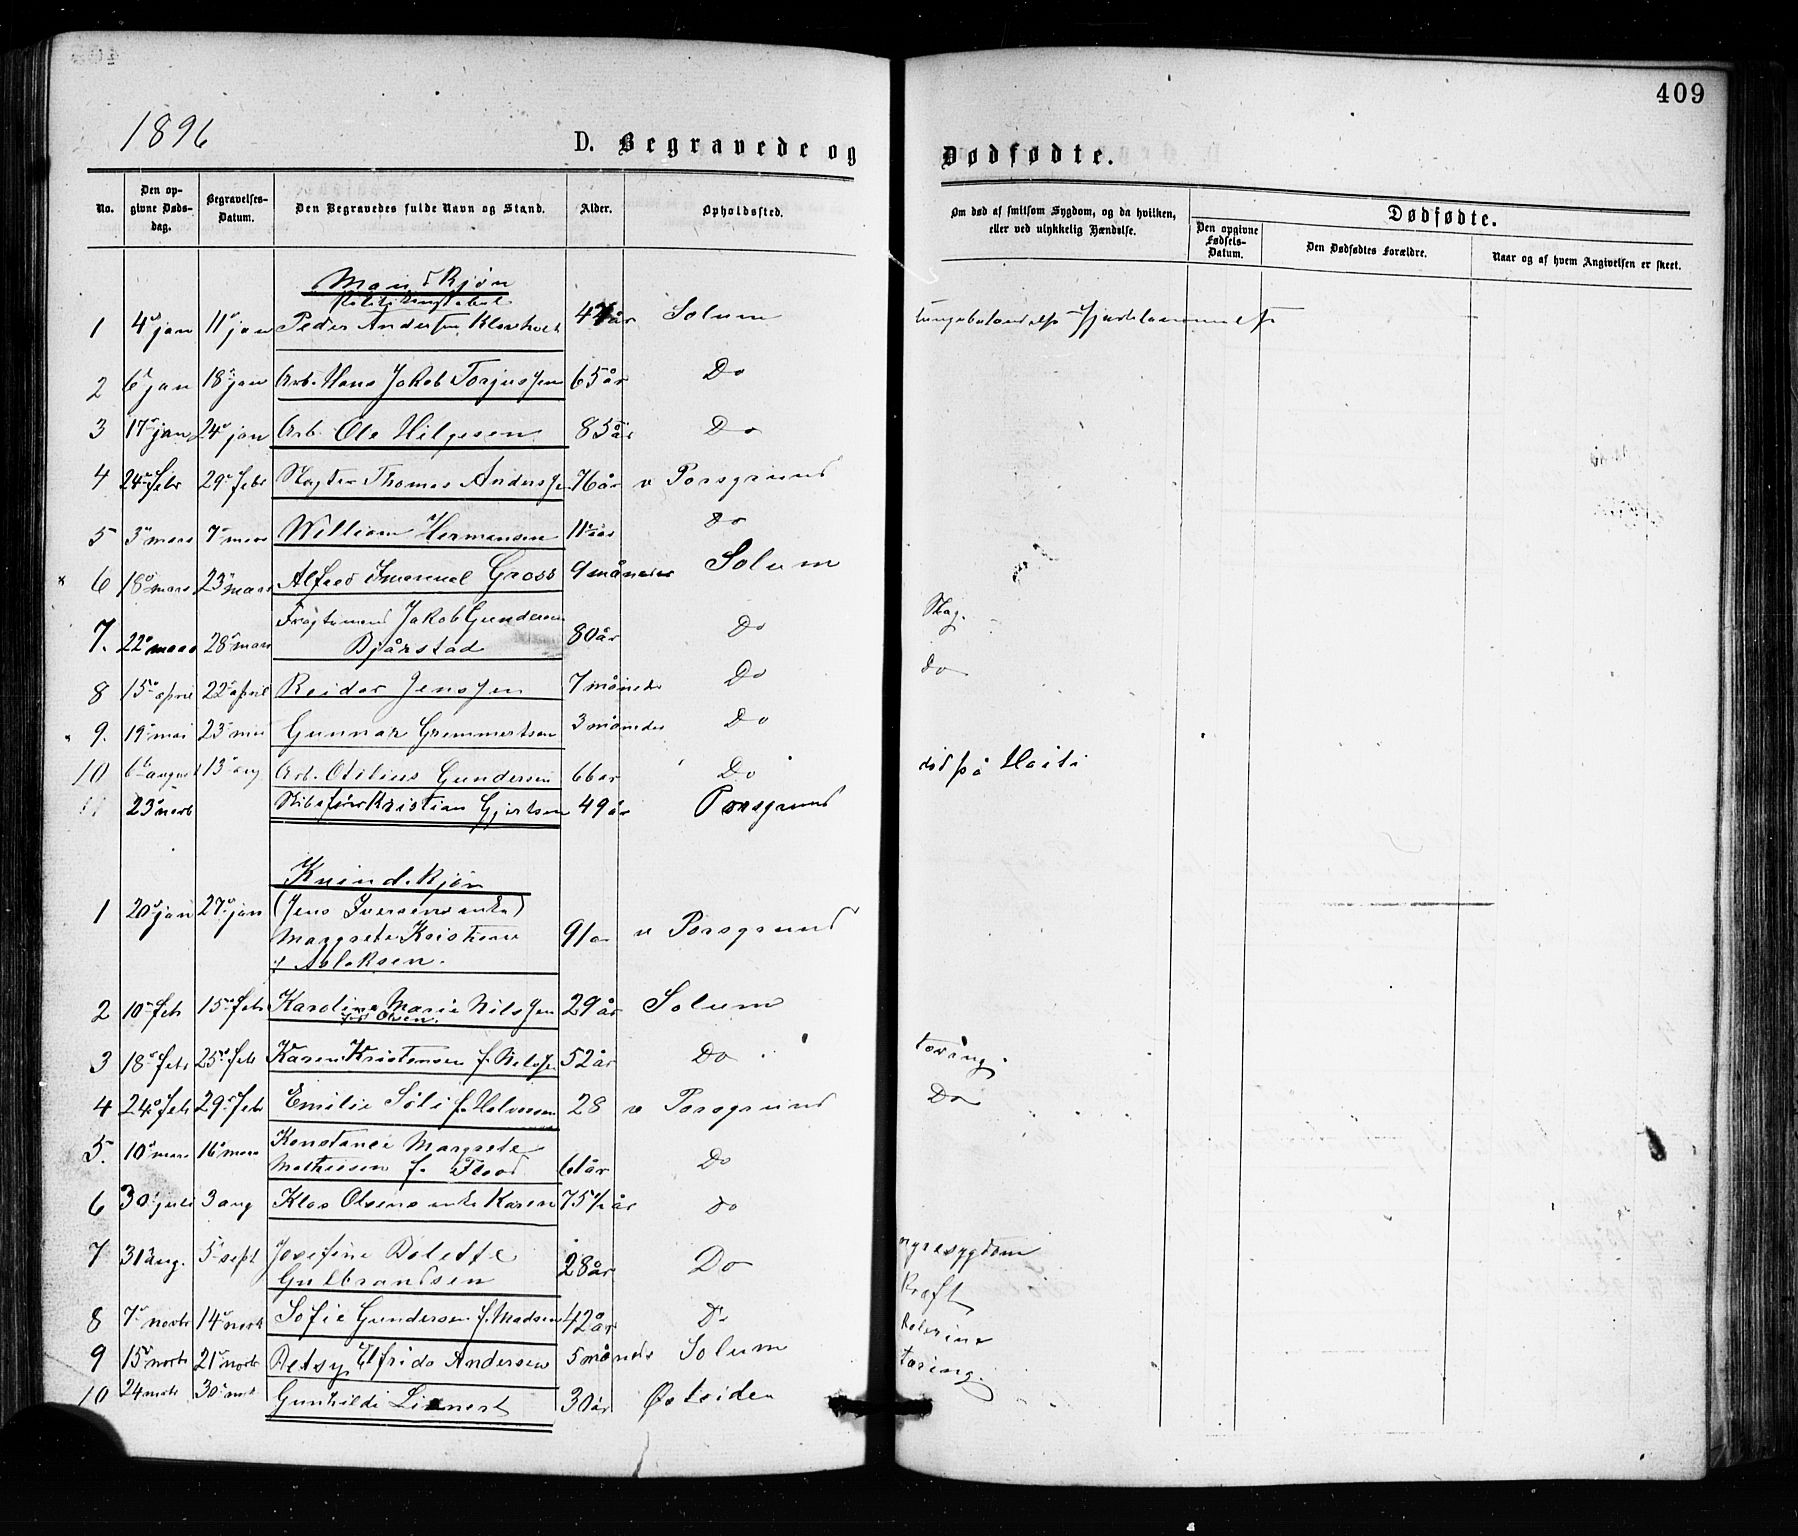 409
1896
D. Begravede og Dødfødte.
No.
Den opgivne Dødsdag.
Begravelses-Datum.
Den Begravedes fulde Navn og Stand.
Alder.
Opholdssted.
Om død af smitsom Sygdom, og da hvilken, eller ved ulykkelig Hændelse.
Dødfødte.
Den opgivne Fødsels-Datum.
Den Dødfødtes Forældre.
Naar og af hvem Angivelsen er skeet.
Mandkjøn
1 4 jan 11 jan Peder Andersen år Solum
2 6 jan 18 jan Arb. Hans Jakob Torjussen 65 år Do
3 17 jan 24 jan Arb. Ole Hilgesen 85 år Do
4 24 febr 29 febr Thomas Anderssen 76 år v Porsgrund
5 3 mars 7 mars William Hermansen Do
6 18 mars 23 mars Alfred Imanuel Gross 9 måneder Solum
7. 22 mars 28 mars Jakob Gundersen
Bjårstad 80 år Do Slag.
8 15 april 22 april Reidar Jenssen 7 måneder Do do
9. 19 mai 23 mai Gunnar Gremmertsen 3 måneder Do
10 6 august 13 aug Arb. Otilius Gundersen 66 år Do død på Haiti
11 23 novb Kristian Gjertsen 49 år Porsgrund
Kvindkjøn
1 20 jan 27 jan (Jens Iversens enke)
Margrete Kristiane
f Aslaksen. 91 v Porsgrund
2 10 feb 15 feb Karoline Marie Nilssen
Olsen. 29 år Solum
3 18 feb 25 feb Karen Kristensen f. 52 år Do tæring
4 24 feb 29 feb Emilie f. Halvorsen 28 v Porsgrund Do
5. 10 mars 16 mars Konstance Margrete
Mathiesen f. Flood 61 år Do
6 30 juli 3 aug Klas Olsens enke Karen 75 1/2 år Do
7 31 aug. 5 sept Josefine Bolette
Gulbrandsen 28 år Do nyresygdom
8 7 novb 14 novb Sofie Gundersen f. Madsen 42 år Do Kræft
9 15 novb 21 novb Betsy Elfrida Andersen 5 måneds Solum Kolerine
10 24 novb 30 novb Gunhilde Linnert 30 år Østsiden tæring.